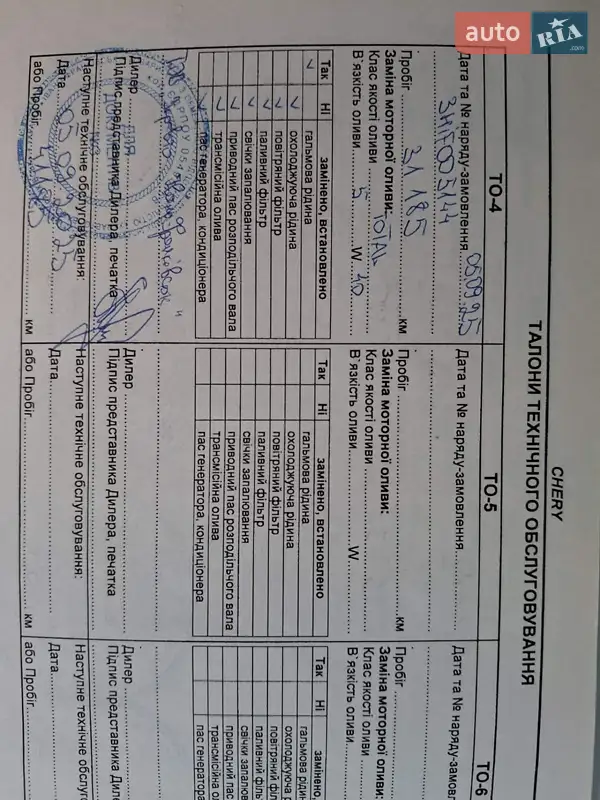 auto RIA .com
CHERY
ТАЛОНИ ТЕХНІЧНОГО ОБСЛУГОВУВАННЯ
ТО-4
Дата та № наряду-замовлення 050925
Пробіг 31 185 км
Заміна моторної оливи:
Клас якості оливи TOTAL
В`язкість оливи 5 W 40
Так Ні замінено, встановлено
гальмова рідина
охолоджуюча рідина
повітряний фільтр
паливний фільтр
свічки запалювання
приводний пас розподільчого вала
трансмісійна олива
пас генератора, кондиціонера
Дилер
Підпис представника Дилера, печатка
Наступне технічне обслуговування:
Дата
або Пробіг км
ТО-5
Дата та № наряду-замовлення
Пробіг км
Заміна моторної оливи:
Клас якості оливи
В`язкість оливи W
Так Ні замінено, встановлено
гальмова рідина
охолоджуюча рідина
повітряний фільтр
паливний фільтр
свічки запалювання
приводний пас розподільчого вала
трансмісійна олива
пас генератора, кондиціонера
Дилер
Підпис представника Дилера, печатка
Наступне технічне обслуговування:
Дата
або Пробіг км
ТО-6
Дата та № наряду-замов
Пробіг
Заміна моторної оливи:
Клас якості оливи
В`язкість оливи
Так Ні замінено,
гальмова рідина
охолоджуюча рідина
повітряний фільтр
паливний фільтр
свічки запалю
приводний пас
трансмісійна о
пас генератора
Дилер
Підпис представника Диле
Наступне технічне обслуг
Дата
або Пробіг